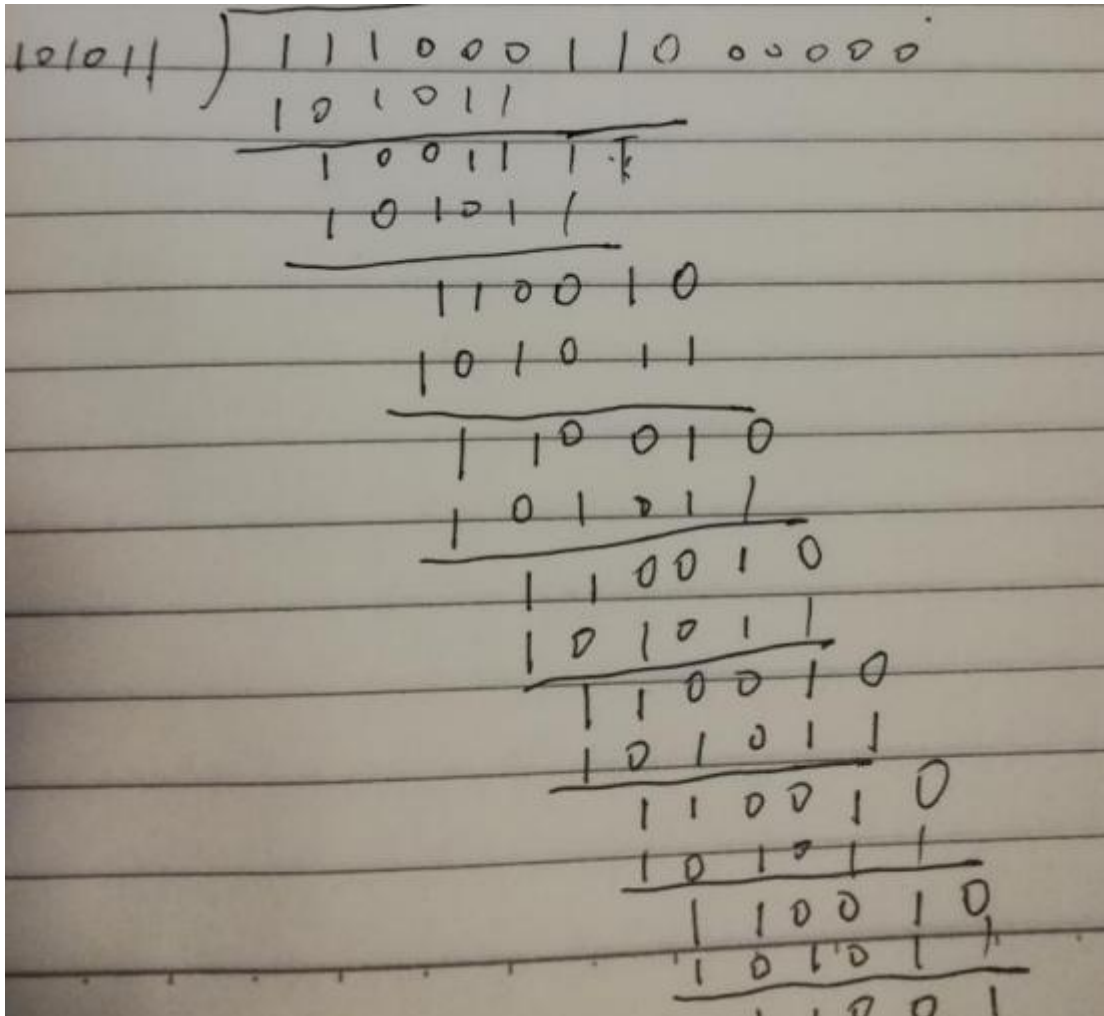 101011 ) 111000110 00000
101011
100111
101011
110010
101011
110010
101011
110010
101011
110010
101011
110010
101011
110010
101011
11001